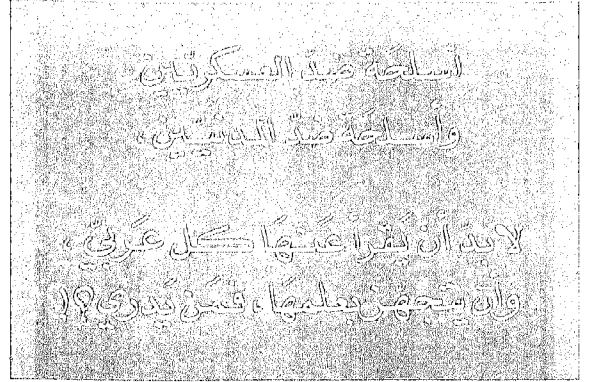 أسلحَة ضدّ العسكريّين،
وأسلحَة ضدّ المدنيّين،
لا بدّ أن يَقرأ عَنهَا كل عَربيّ،
وَأن يتجهّز بعلمهَا، فمَن يَدري؟!